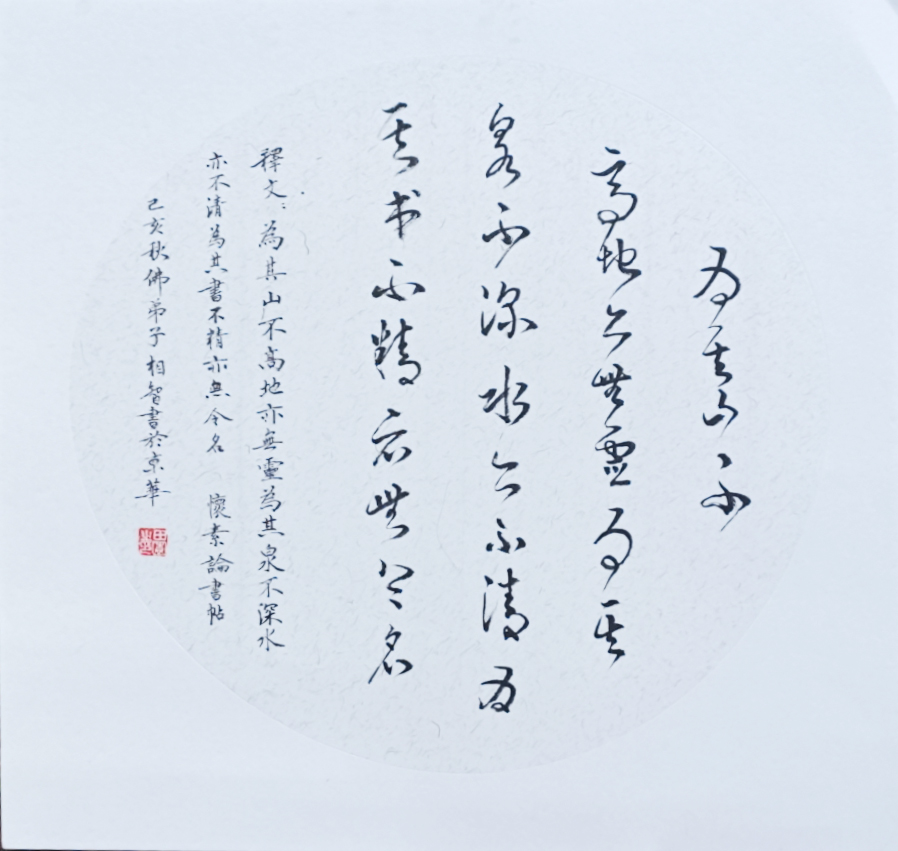 为其山不
高地亦無靈為其
泉不深水亦不清为
其书不精亦無令名
釋文：為其山不高地亦無靈為其泉不深水
亦不清為其書不精亦無令名 懷素論書帖
己亥秋佛弟子相智書於京華